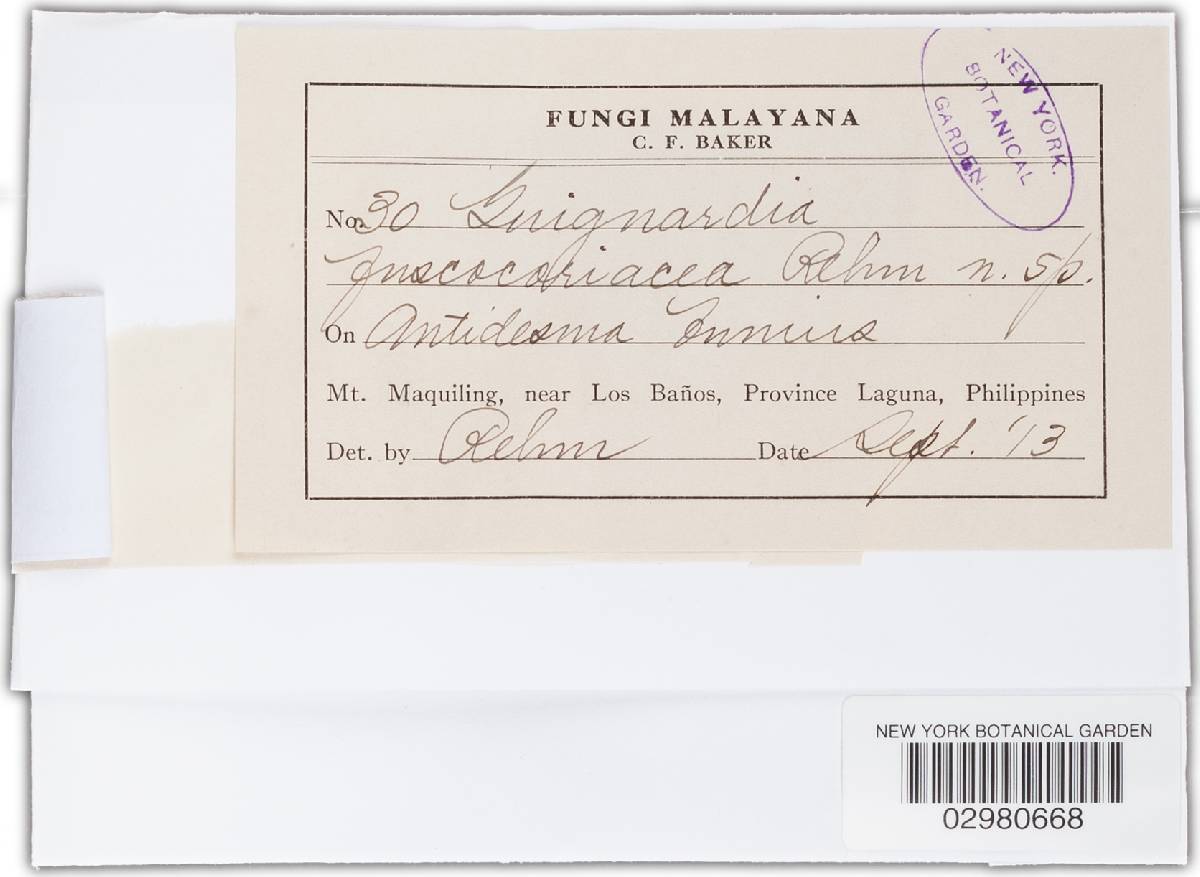 FUNGI MALAYANA
C. F. BAKER
No. 30 Guignardia
fuscocoriacea Rehm n. sp.
On Antidesma
Mt. Maquiling, near Los Baños, Province Laguna, Philippines
Det. by Rehm Date Sept. '13
NEW YORK.
BOTANICAL
GARDEN.
NEW YORK BOTANICAL GARDEN
02980668